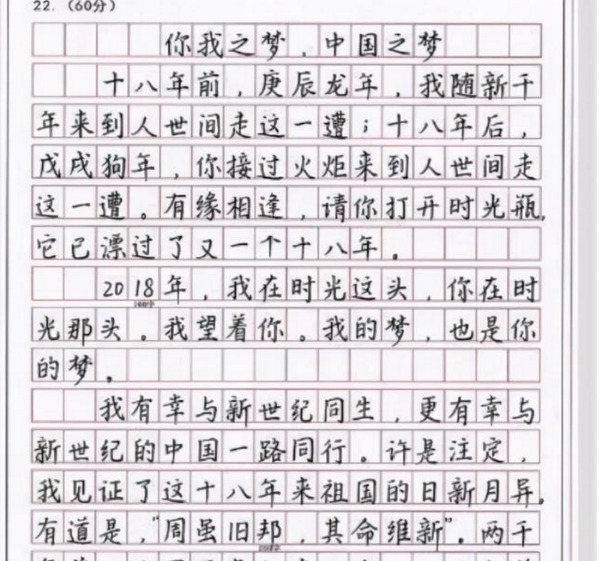 22.（60分）
你我之梦，中国之梦
十八年前，庚辰龙年，我随新千
年来到人世间走这一遭；十八年后，
戊戌狗年，你接过火炬来到人世间走
这一遭。有缘相逢，请你打开时光瓶，
它已漂过了又一个十八年。
2018年，我在时光这头，你在时
100字
光那头。我望着你。我的梦，也是你
的梦。
我有幸与新世纪同生，更有幸与
新世纪的中国一路同行。许是注定，
我见证了这十八年来祖国的日新月异。
有道是，“周虽旧邦，其命维新”。两千
200字